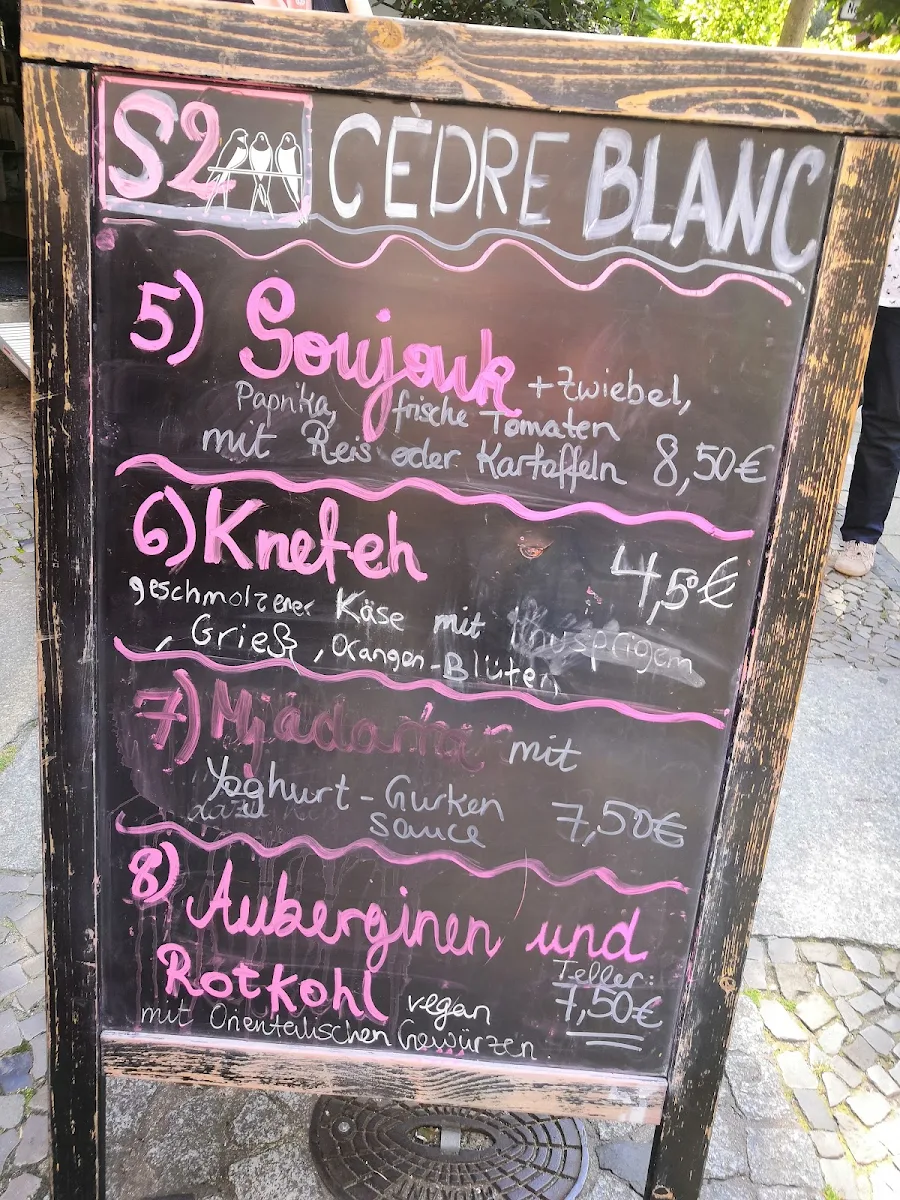 S2 CÈDRE BLANC
5) Soujouk + Zwiebel,
Paprika, frische Tomaten
mit Reis oder Kartoffeln 8,50€
6) Knefeh 4,5€
geschmolzener Käse mit knusprigem
, Grieß, Orangen-Blüten
7) mit
Yoghurt-Gurken
dazu sauce 7,50€
8) Auberginen und
Rotkohl vegan Teller:
7,50€
mit Orientalischen Gewürzen